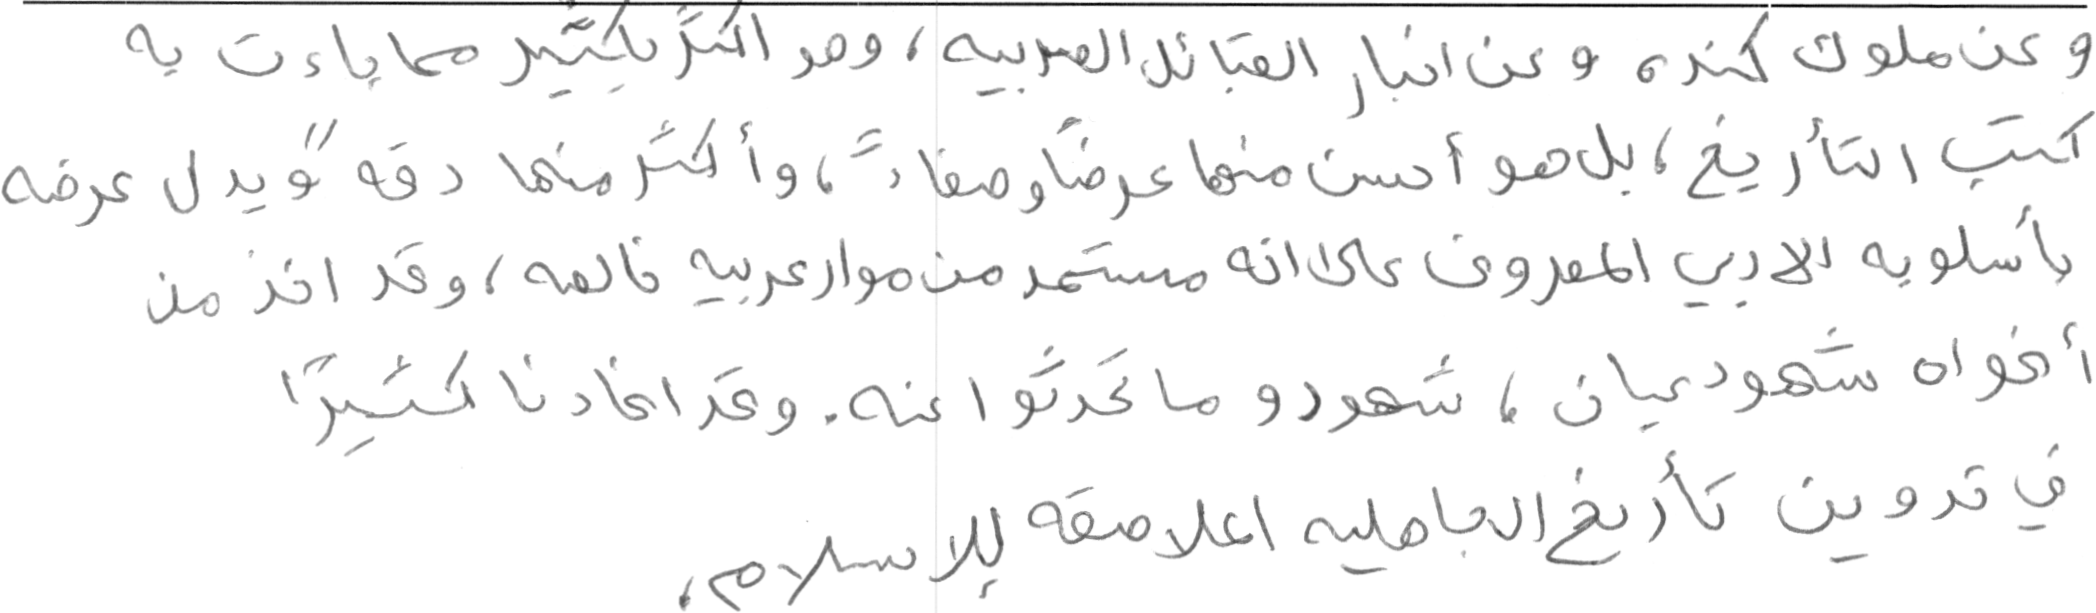 و عن ملوك كنده و عن اخبار القبائل العربيه ، وهو اكثر بكثير مما جاءت به
كتب التأريخ ، بل هو أحسن منها عرضًا وصفاءً ، وأكثر منها دقه ، ويدل عرضه
بأسلوبه الادبي المعروف على انه مستمد من موارد عربيه خالصه ، وقد اخذ من
أفواه شهود عيان ، شهدوا ما تحدثوا عنه . وقد افادنا كثيرًا
في تدوين تأريخ الجاهليه الملاصقه للإسلام .